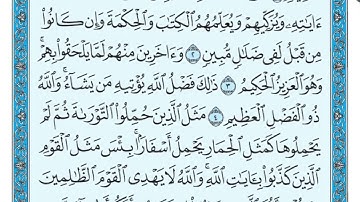 ءَايَٰتِهِۦ وَيُزَكِّيهِمْ وَيُعَلِّمُهُمُ ٱلْكِتَٰبَ وَٱلْحِكْمَةَ وَإِن كَانُوا۟
مِن قَبْلُ لَفِى ضَلَٰلٍ مُّبِينٍ ٢ وَءَاخَرِينَ مِنْهُمْ لَمَّا يَلْحَقُوا۟ بِهِمْ
وَهُوَ ٱلْعَزِيزُ ٱلْحَكِيمُ ٣ ذَٰلِكَ فَضْلُ ٱللَّهِ يُؤْتِيهِ مَن يَشَآءُ وَٱللَّهُ
ذُو ٱلْفَضْلِ ٱلْعَظِيمِ ٤ مَثَلُ ٱلَّذِينَ حُمِّلُوا۟ ٱلتَّوْرَىٰةَ ثُمَّ لَمْ
يَحْمِلُوهَا كَمَثَلِ ٱلْحِمَارِ يَحْمِلُ أَسْفَارًۢا بِئْسَ مَثَلُ ٱلْقَوْمِ
ٱلَّذِينَ كَذَّبُوا۟ بِـَٔايَٰتِ ٱللَّهِ وَٱللَّهُ لَا يَهْدِى ٱلْقَوْمَ ٱلظَّٰلِمِينَ